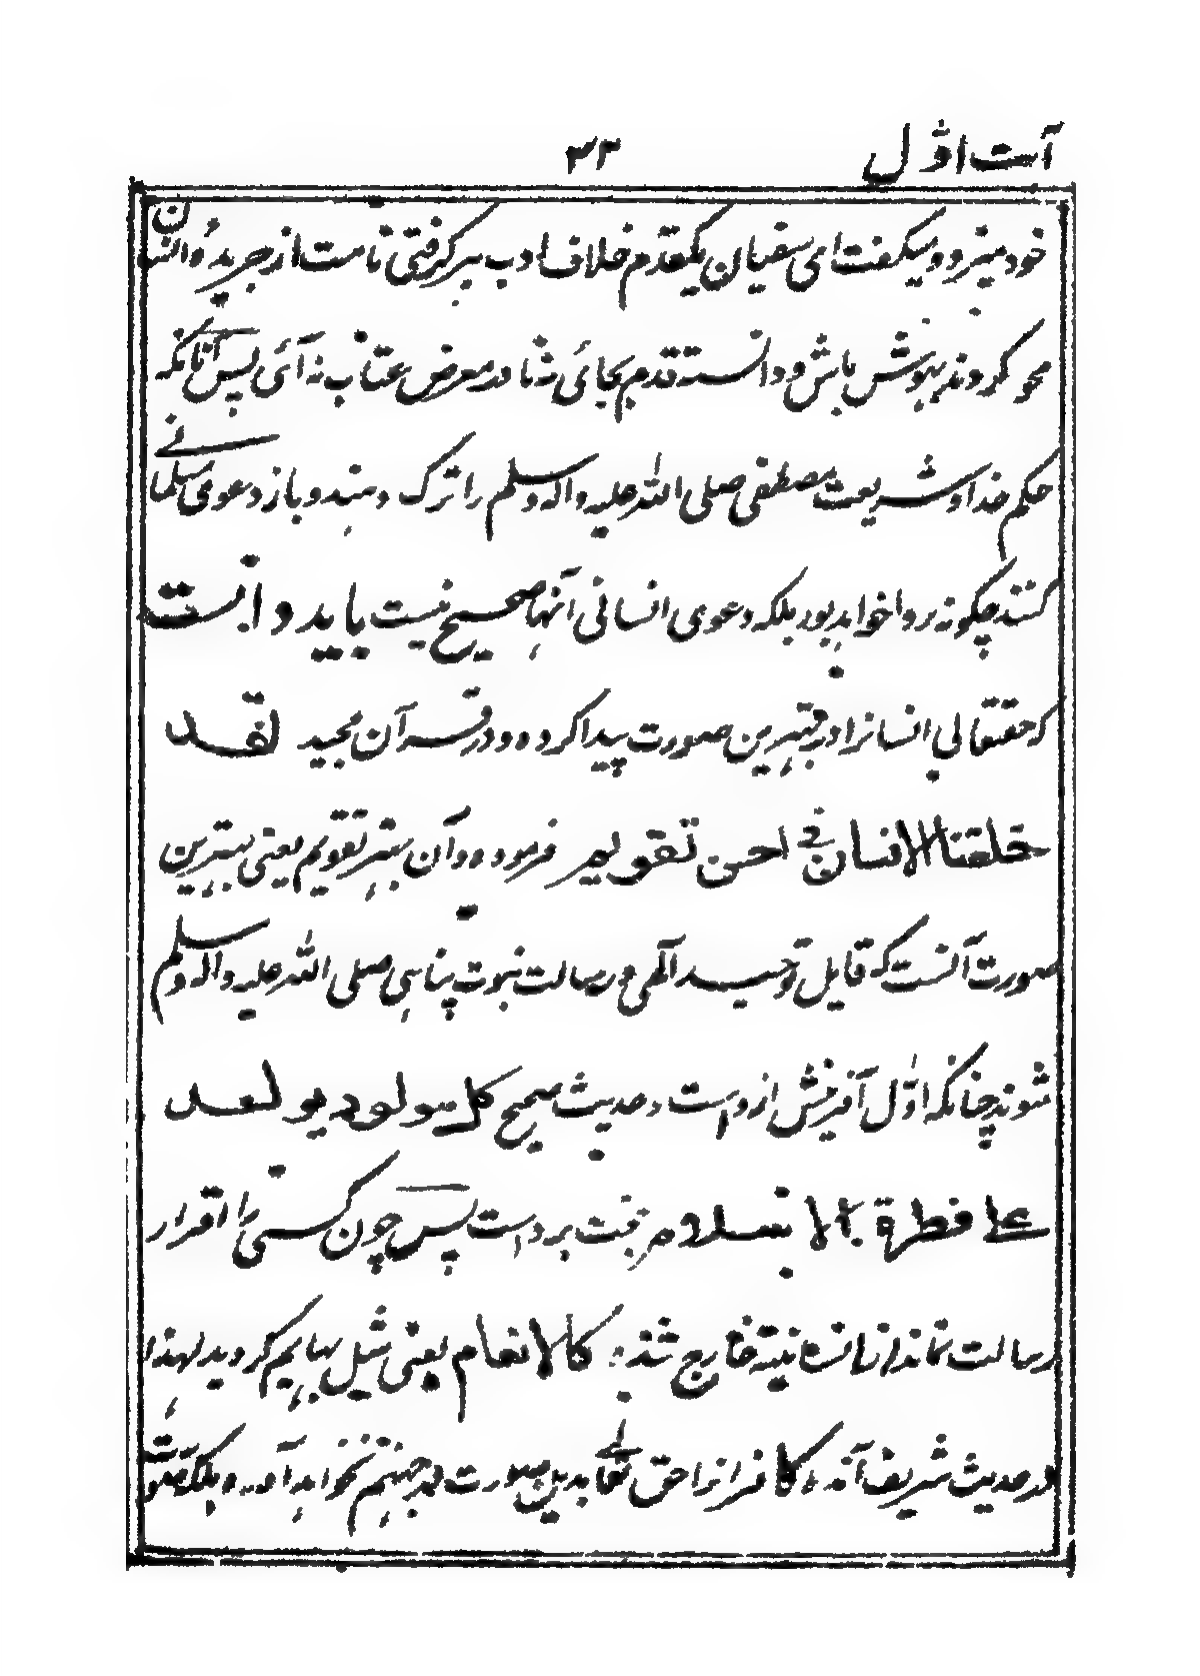 آیت اوّل ۳۳
خود میزد و میگفت ای سفیان یکقدم خلاف ادب برگرفتی نامت از جریدهٔ انسان
محو کردند بهوش باش و دانسته قدم بجائی نه تا در معرض عتاب نه آئی پس آنانکه
حکم خدا و شریعت مصطفی صلی الله علیه واله وسلم را ترک دهند و باز دعوی مسلمانے
کنند چگونه روا خواهد بود بلکه دعوی انسانی آنها صحیح نیست باید دانست
که حقتعالی انسانرا در بهترین صورت پیدا کرده و در قرآن مجید لقد
خلقنا الانسان فی احسن تقویم فرموده و آن بهتر تقویم یعنی بهترین
صورت آنست که قایل توحید آلهی و رسالت نبوت پناهی صلی الله علیه واله وسلم
شوند چنانکه اوّل آفرینش از و است و حدیث صحیح کل مولود یولد
علے فطرة الاسلام مبنت بر و است پس چون کسی را اقرار
رسالت نماند از انسانیته خارج شد کالانعام یعنی مثل بهایم گردید لهذا
در حدیث شریف آمده کافرانرا حق تعالے بدین صورت در جهنم نخواهد آورد بلکه صورت